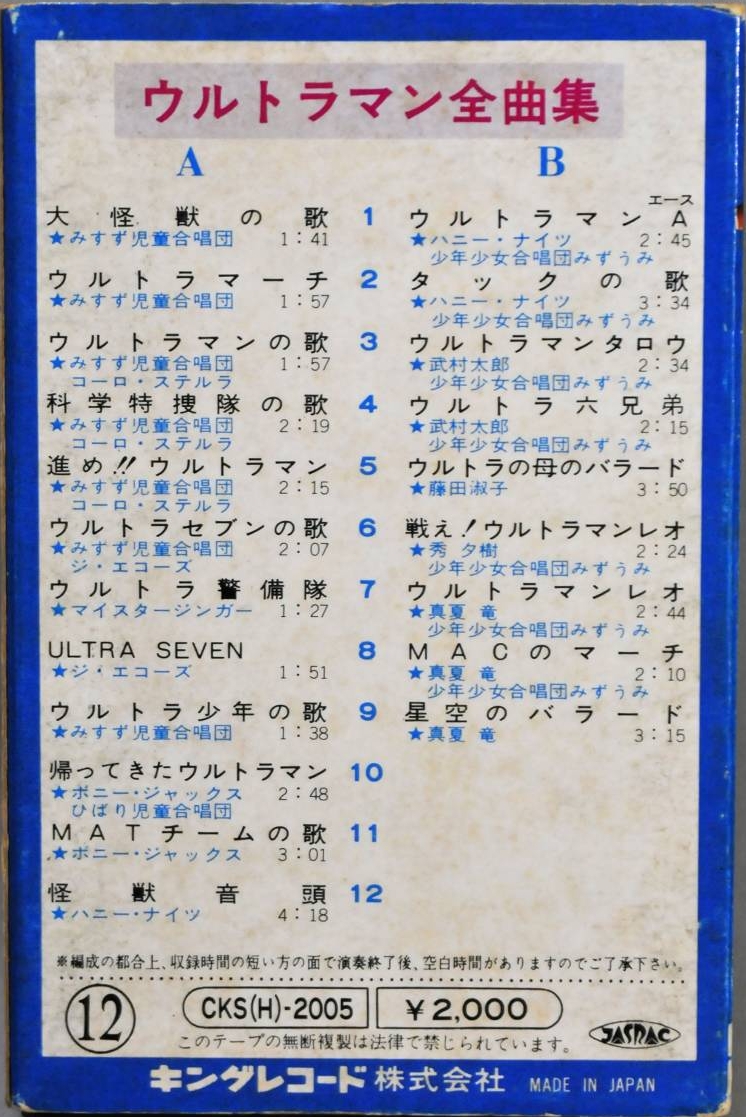 ウルトラマン全曲集
A
大怪獣の歌
★みすず児童合唱団 1:41
ウルトラマーチ
★みすず児童合唱団 1:57
ウルトラマンの歌
★みすず児童合唱団 1:57
コーロ・ステルラ
科学特捜隊の歌
★みすず児童合唱団 2:19
コーロ・ステルラ
進め!!ウルトラマン
★みすず児童合唱団 2:15
コーロ・ステルラ
ウルトラセブンの歌
★みすず児童合唱団 2:07
ジ・エコーズ
ウルトラ警備隊
★マイスタージンガー 1:27
ULTRA SEVEN
★ジ・エコーズ 1:51
ウルトラ少年の歌
★みすず児童合唱団 1:38
帰ってきたウルトラマン
★ボニー・ジャックス 2:48
ひばり児童合唱団
MATチームの歌
★ボニー・ジャックス 3:01
怪獣音頭
★ハニー・ナイツ 4:18
1
2
3
4
5
6
7
8
9
10
11
12
B
エース
ウルトラマンA
★ハニー・ナイツ 2:45
少年少女合唱団みずうみ
タックの歌
★ハニー・ナイツ 3:34
少年少女合唱団みずうみ
ウルトラマンタロウ
★武村太郎 2:34
少年少女合唱団みずうみ
ウルトラ六兄弟
★武村太郎 2:15
少年少女合唱団みずうみ
ウルトラの母のバラード
★藤田淑子 3:50
戦え!ウルトラマンレオ
★秀 夕樹 2:24
少年少女合唱団みずうみ
ウルトラマンレオ
★真夏 竜 2:44
少年少女合唱団みずうみ
MACのマーチ
★真夏 竜 2:10
少年少女合唱団みずうみ
星空のバラード
★真夏 竜 3:15
※編成の都合上、収録時間の短い方の面で演奏終了後、空白時間がありますのでご了承下さい。
⑫ CKS(H)-2005 ¥2,000
JASRAC
このテープの無断複製は法律で禁じられています。
キングレコード株式会社 MADE IN JAPAN